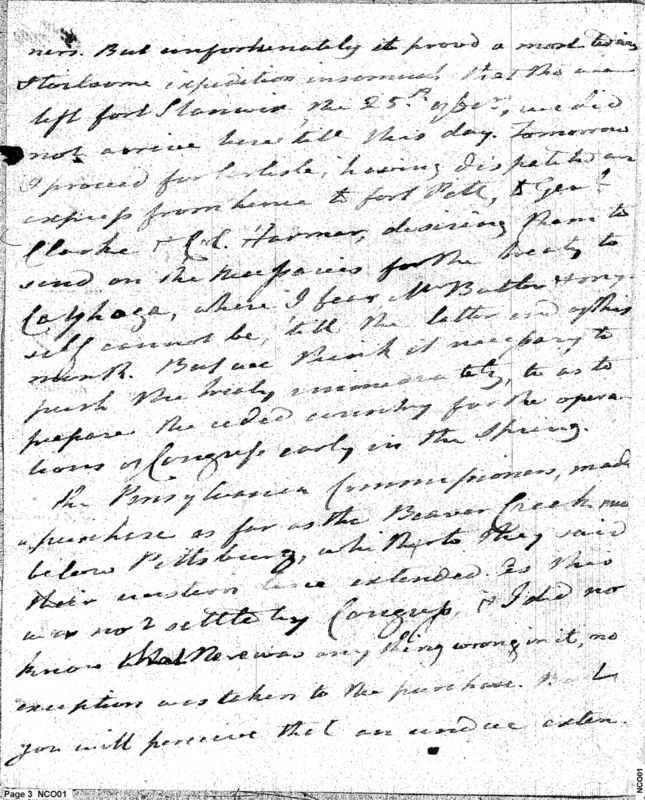 ners. But unfortunately it provd a most tedious
& toilsome expedition insomuch that tho we
left fort Stanwix, the 25th of Octr, we did
not arrive here till this day. Tomorrow
I proceed for Carlisle, having dispatched an
express from hence to fort Pitt, to Genl
Clarke & Col. Harmar, desiring them to
send on the necessaries for the treaty to
Cayhoga, where I fear Mr Butler & my-
self cannot be, till the latter end of this
month. But we think it necessary to
push the treaty immediately, so as to
prepare the ceded country for the opera-
tions of Congress early in the Spring.
The Pensylvania Commissioners, made
a purchase as far as the Beaver Creek
below Pittsburg, whitherto they said
their western line extended. As this
was not settled by Congress, & I did no
know that there was any thing wrong in it, no
exception was taken to the purchase. But
you will perceive that an undue exten-
Page 3 NCO01
NCO01